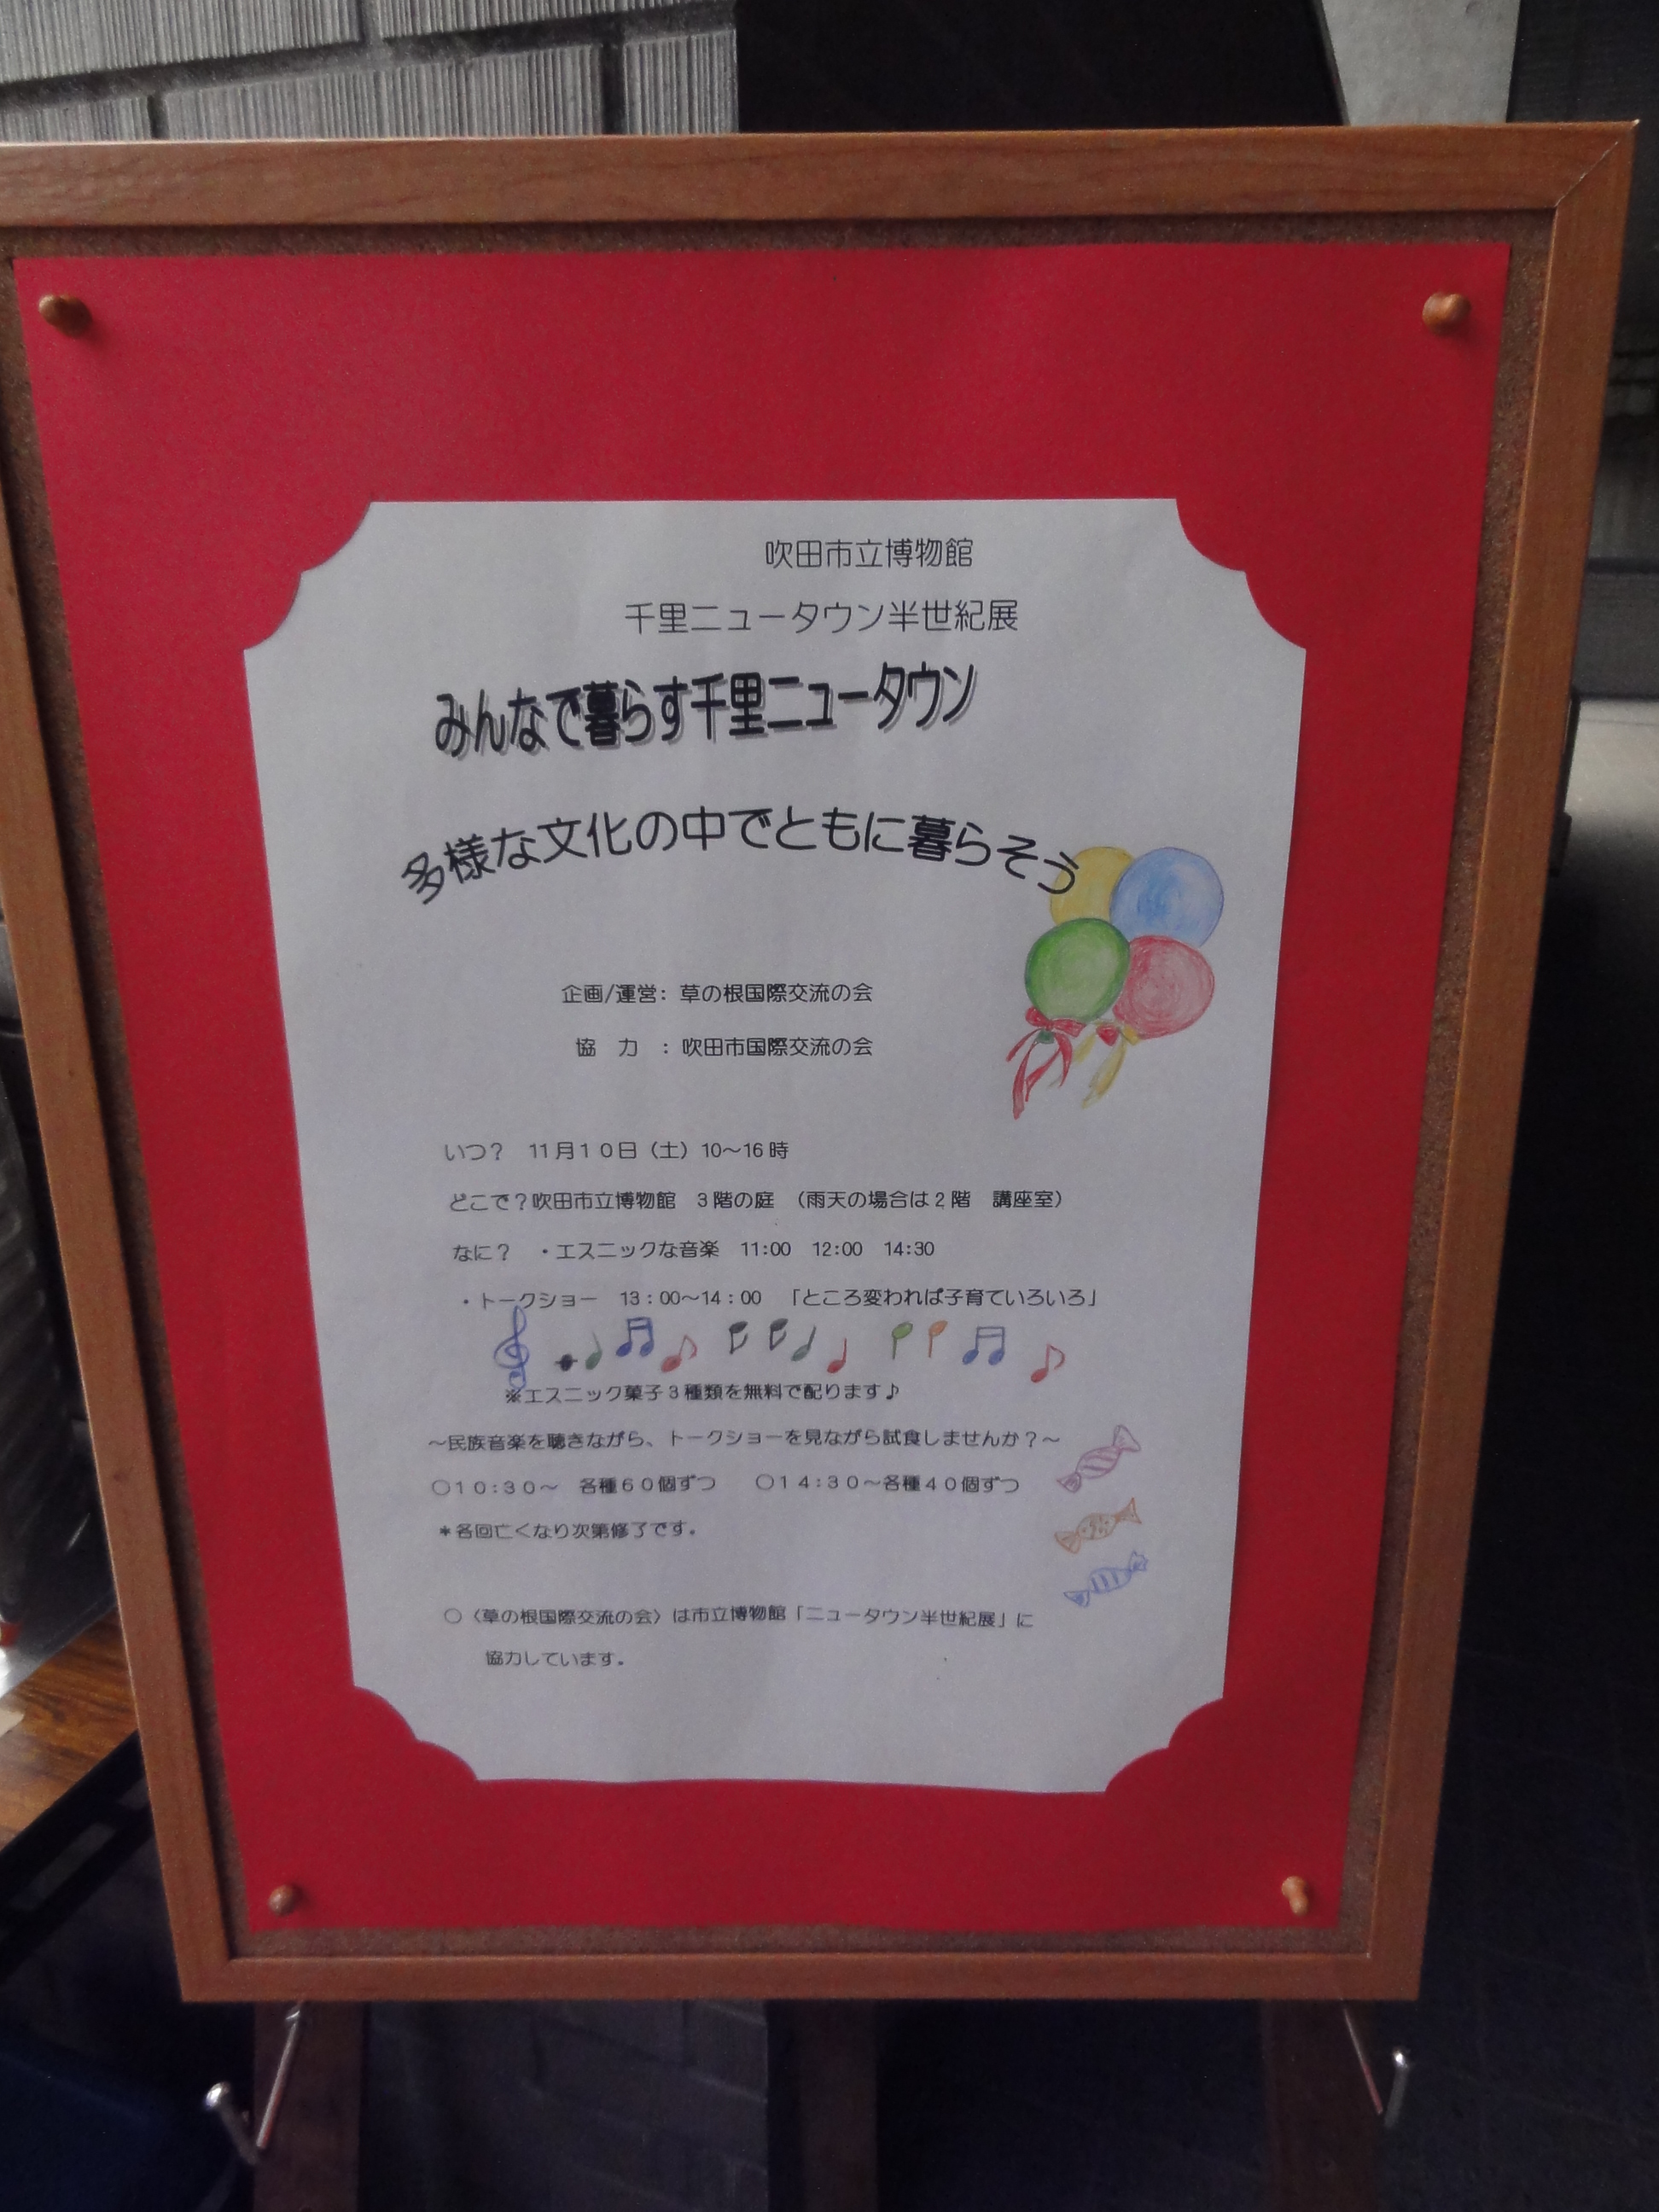 吹田市立博物館
千里ニュータウン半世紀展
みんなで暮らす千里ニュータウン
多様な文化の中でともに暮らそう
企画/運営: 草の根国際交流の会
協　力　: 吹田市国際交流の会
いつ？　11月１０日（土）10～16時
どこで？吹田市立博物館　3階の庭　（雨天の場合は2階　講座室）
なに？　・エスニックな音楽　11:00　12:00　14:30
・トークショー　13：00～14：00　「ところ変われば子育ていろいろ」
※エスニック菓子3種類を無料で配ります♪
～民族音楽を聴きながら、トークショーを見ながら試食しませんか？～
○１０:３０～　各種６０個ずつ　　○１４:３０～各種４０個ずつ
＊各回亡くなり次第修了です。
○〈草の根国際交流の会〉は市立博物館「ニュータウン半世紀展」に
協力しています。